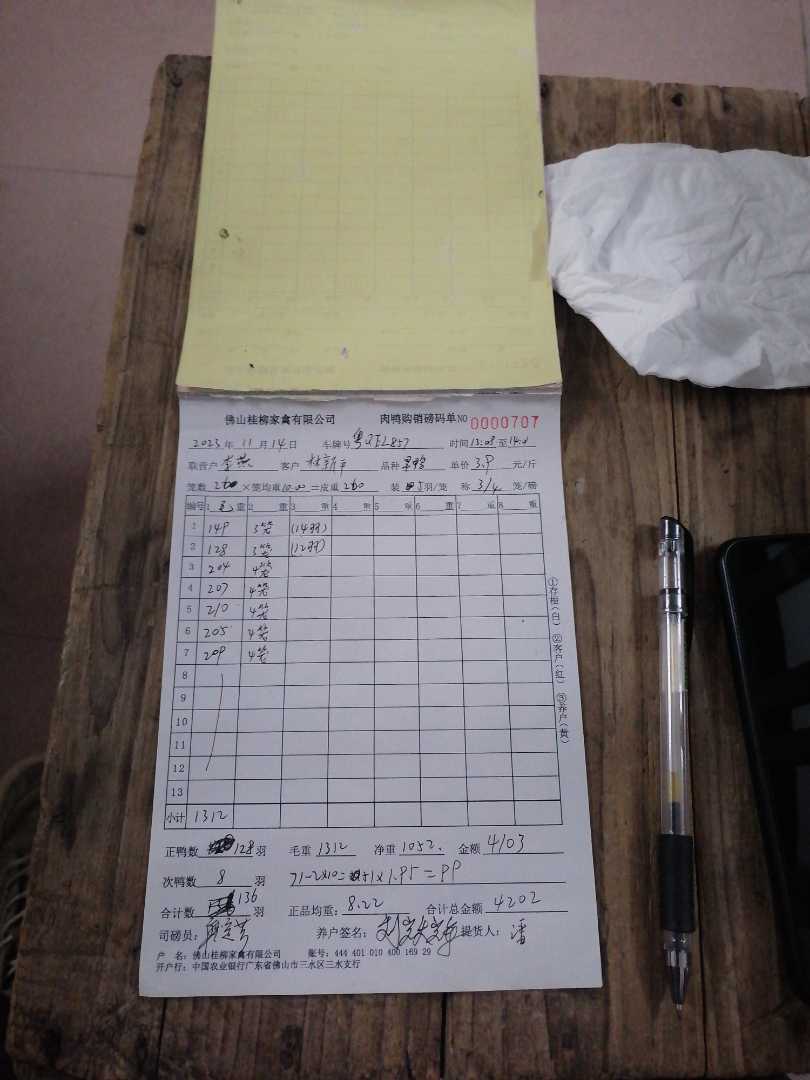 佛山桂柳家禽有限公司 肉鸭购销磅码单 NO 0000707
2023年11月14日 车牌号 时间13:08至14:01
联营户 客户 林新平 品种 单价 3.9 元/斤
笼数 260 ×笼均重10.00=皮重 260 装 5羽/笼 称 3/4 笼/磅
编号 1 毛 重 2 重 3 重 4 重 5 重 6 重 7 重 8 重
1 149 3笼 (14羽)
2 128 3笼 (12羽)
3 204 4笼
4 207 4笼
5 210 4笼
6 205 4笼
7 209 4笼
8
9
10
11
12
13
小计 1312
①存根(白) ②客户(红) ③养户(黄)
正鸭数 128 羽 毛重 1312 净重 1052. 金额 4103
次鸭数 8 羽 71-2×10= 51×1.95=99
合计数 136 羽 正品均重: 8.22 合计总金额 4202
司磅员: 养户签名: 提货人: 潘
户 名: 佛山桂柳家禽有限公司 账号: 444 401 010 400 169 29
开户行: 中国农业银行广东省佛山市三水区三水支行